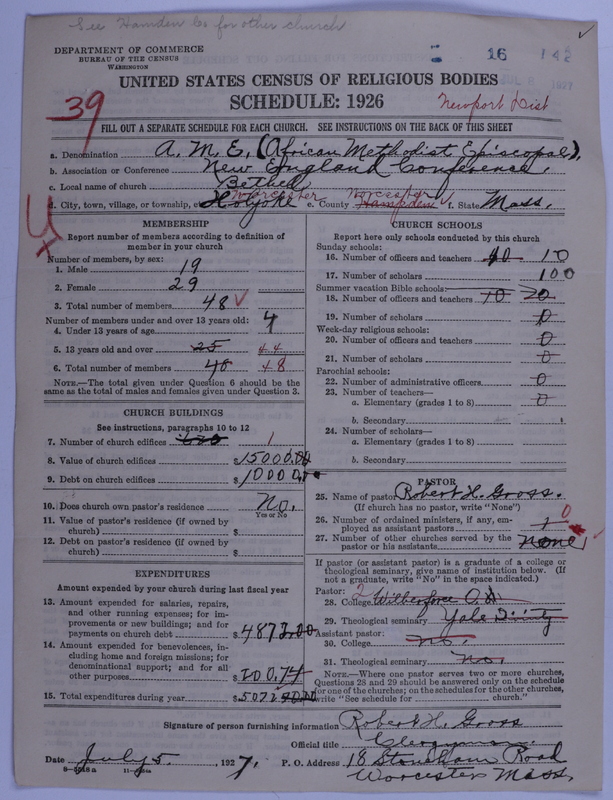 See Hamden Co for other church
DEPARTMENT OF COMMERCE
BUREAU OF THE CENSUS
WASHINGTON
16
UNITED STATES CENSUS OF RELIGIOUS BODIES
SCHEDULE: 1926
39
Newport Dist
FILL OUT A SEPARATE SCHEDULE FOR EACH CHURCH. SEE INSTRUCTIONS ON THE BACK OF THIS SHEET
a. Denomination A. M. E. (African Methodist Episcopal),
b. Association or Conference New England Conference,
c. Local name of church Bethel
d. City, town, village, or township, etc. Holyoke Worcester e. County Hampden Worcester f. State Mass,
MEMBERSHIP
Report number of members according to definition of member in your church
Number of members, by sex:
1. Male 19
2. Female 29
3. Total number of members 48
Number of members under and over 13 years old:
4. Under 13 years of age 4
5. 13 years old and over 25 44
6. Total number of members 48
NOTE.—The total given under Question 6 should be the same as the total of males and females given under Question 3.
CHURCH BUILDINGS
See instructions, paragraphs 10 to 12
7. Number of church edifices 1
8. Value of church edifices $15000.00
9. Debt on church edifices $1000.00
10. Does church own pastor's residence No.
Yes or No
11. Value of pastor's residence (if owned by church) $
12. Debt on pastor's residence (if owned by church) $
EXPENDITURES
Amount expended by your church during last fiscal year
13. Amount expended for salaries, repairs, and other running expenses; for improvements or new buildings; and for payments on church debt $4872.00
14. Amount expended for benevolences, including home and foreign missions; for denominational support; and for all other purposes $200.74
15. Total expenditures during year $5072
CHURCH SCHOOLS
Report here only schools conducted by this church
Sunday schools:
16. Number of officers and teachers 10 10
17. Number of scholars 100
Summer vacation Bible schools:
18. Number of officers and teachers 10 20
19. Number of scholars 0
Week-day religious schools:
20. Number of officers and teachers 0
21. Number of scholars 0
Parochial schools:
22. Number of administrative officers 0
23. Number of teachers—
a. Elementary (grades 1 to 8) 0
b. Secondary
24. Number of scholars—
a. Elementary (grades 1 to 8)
b. Secondary
PASTOR
25. Name of pastor Robert H. Gross.
(If church has no pastor, write "None")
26. Number of ordained ministers, if any, employed as assistant pastors 1 0
27. Number of other churches served by the pastor or his assistants none
If pastor (or assistant pastor) is a graduate of a college or theological seminary, give name of institution below. (If not a graduate, write "No" in the space indicated.)
Pastor: 2
28. College Wilberforce
29. Theological seminary Yale Divinity
Assistant pastor:
30. College no.
31. Theological seminary no
NOTE.—Where one pastor serves two or more churches, Questions 28 and 29 should be answered only on the schedule for one of the churches; on the schedules for the other churches, write "See schedule for church."
Signature of person furnishing information Robert H. Gross
Official title Clergyman.
Date July 5, 1927. P. O. Address 18 Stoneham Road
Worcester Mass.